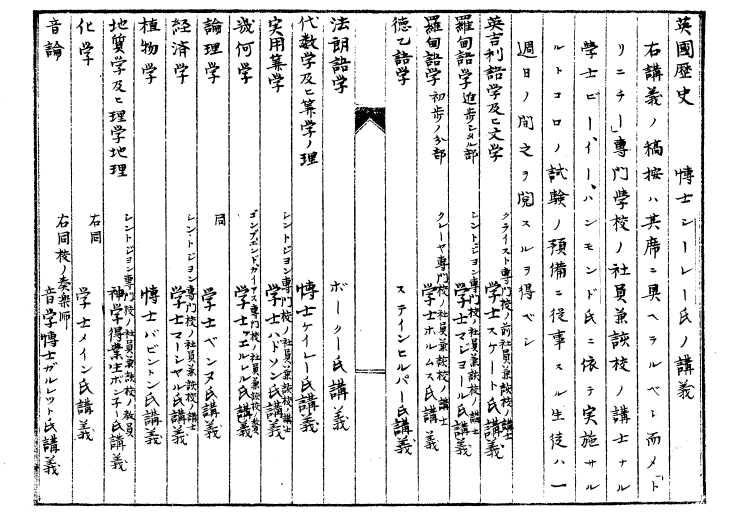 英國歷史　博士シーレー氏ノ講義
右講義ノ稿按ハ其席ニ具ヘラルベシ而メ「ト
リニチー」專門学校ノ社員兼該校ノ講士ナル
學士ビー、イー、ハンモンド氏ニ依テ実施サル
ルトコロノ試験ノ預備ニ従事スル生徒ハ一
週日ノ間之ヲ閲スルヲ得ベシ
英吉利語学及ヒ文学　クライスト専門校ノ前社員兼該校ノ講士 学士スケート氏講義
羅甸語学 進歩シタル部　シントジョン専門校ノ社員兼該校ノ講士 学士マジョール氏講義
羅甸語学 初歩ノ分部　クレーヤ専門校ノ社員兼該校ノ講士 学士ホルムス氏講義
德乙語学　ステインヒルパー氏講義
法朗語学　ボークー氏講義
代数学及ヒ算学ノ理　博士ケイレー氏講義
実用算学　シントジョン専門校ノ社員兼該校ノ講士 学士ハドソン氏講義
幾何学　ゴンヴエンドガイアス専門校ノ社員兼該校ノ教員 学士ヱルレル氏講義
論理学　同　学士ベンヌ氏講義
経済学　シントジョン専門校ノ社員兼該校ノ講士 学士マーシヤル氏講義
植物学　博士バビントン氏講義
地質学及ヒ理学地理　シントジョン専門校ノ社員兼該校ノ教員 神学得業生ボンチー氏講義
化学　右同　学士メイン氏講義
音論　右同校ノ奏楽師 音学博士ガルレット氏講義